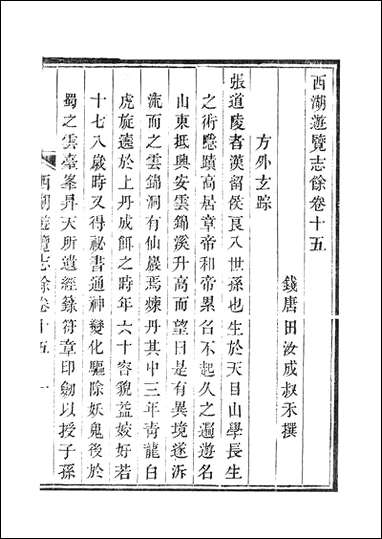 西湖遊覽志餘卷十五
錢唐田汝成叔禾撰
方外玄踪
張道陵者漢留侯良八世孫也生於天目山學長生
之術隱蹟高居章帝和帝累名不起久之遍遊名
山東抵興安雲錦溪升高而望曰是有異境遂泝
流而之雲錦洞有仙巖焉煉丹其中三年青龍白
虎旋遶於上丹成餌之時年六十容貌益姣好若
十七八歲時又得祕書通神變化驅除妖鬼後於
蜀之雲臺峯昇天所遺經籙符章印劒以授子孫
西湖遊覽志餘卷十五 一